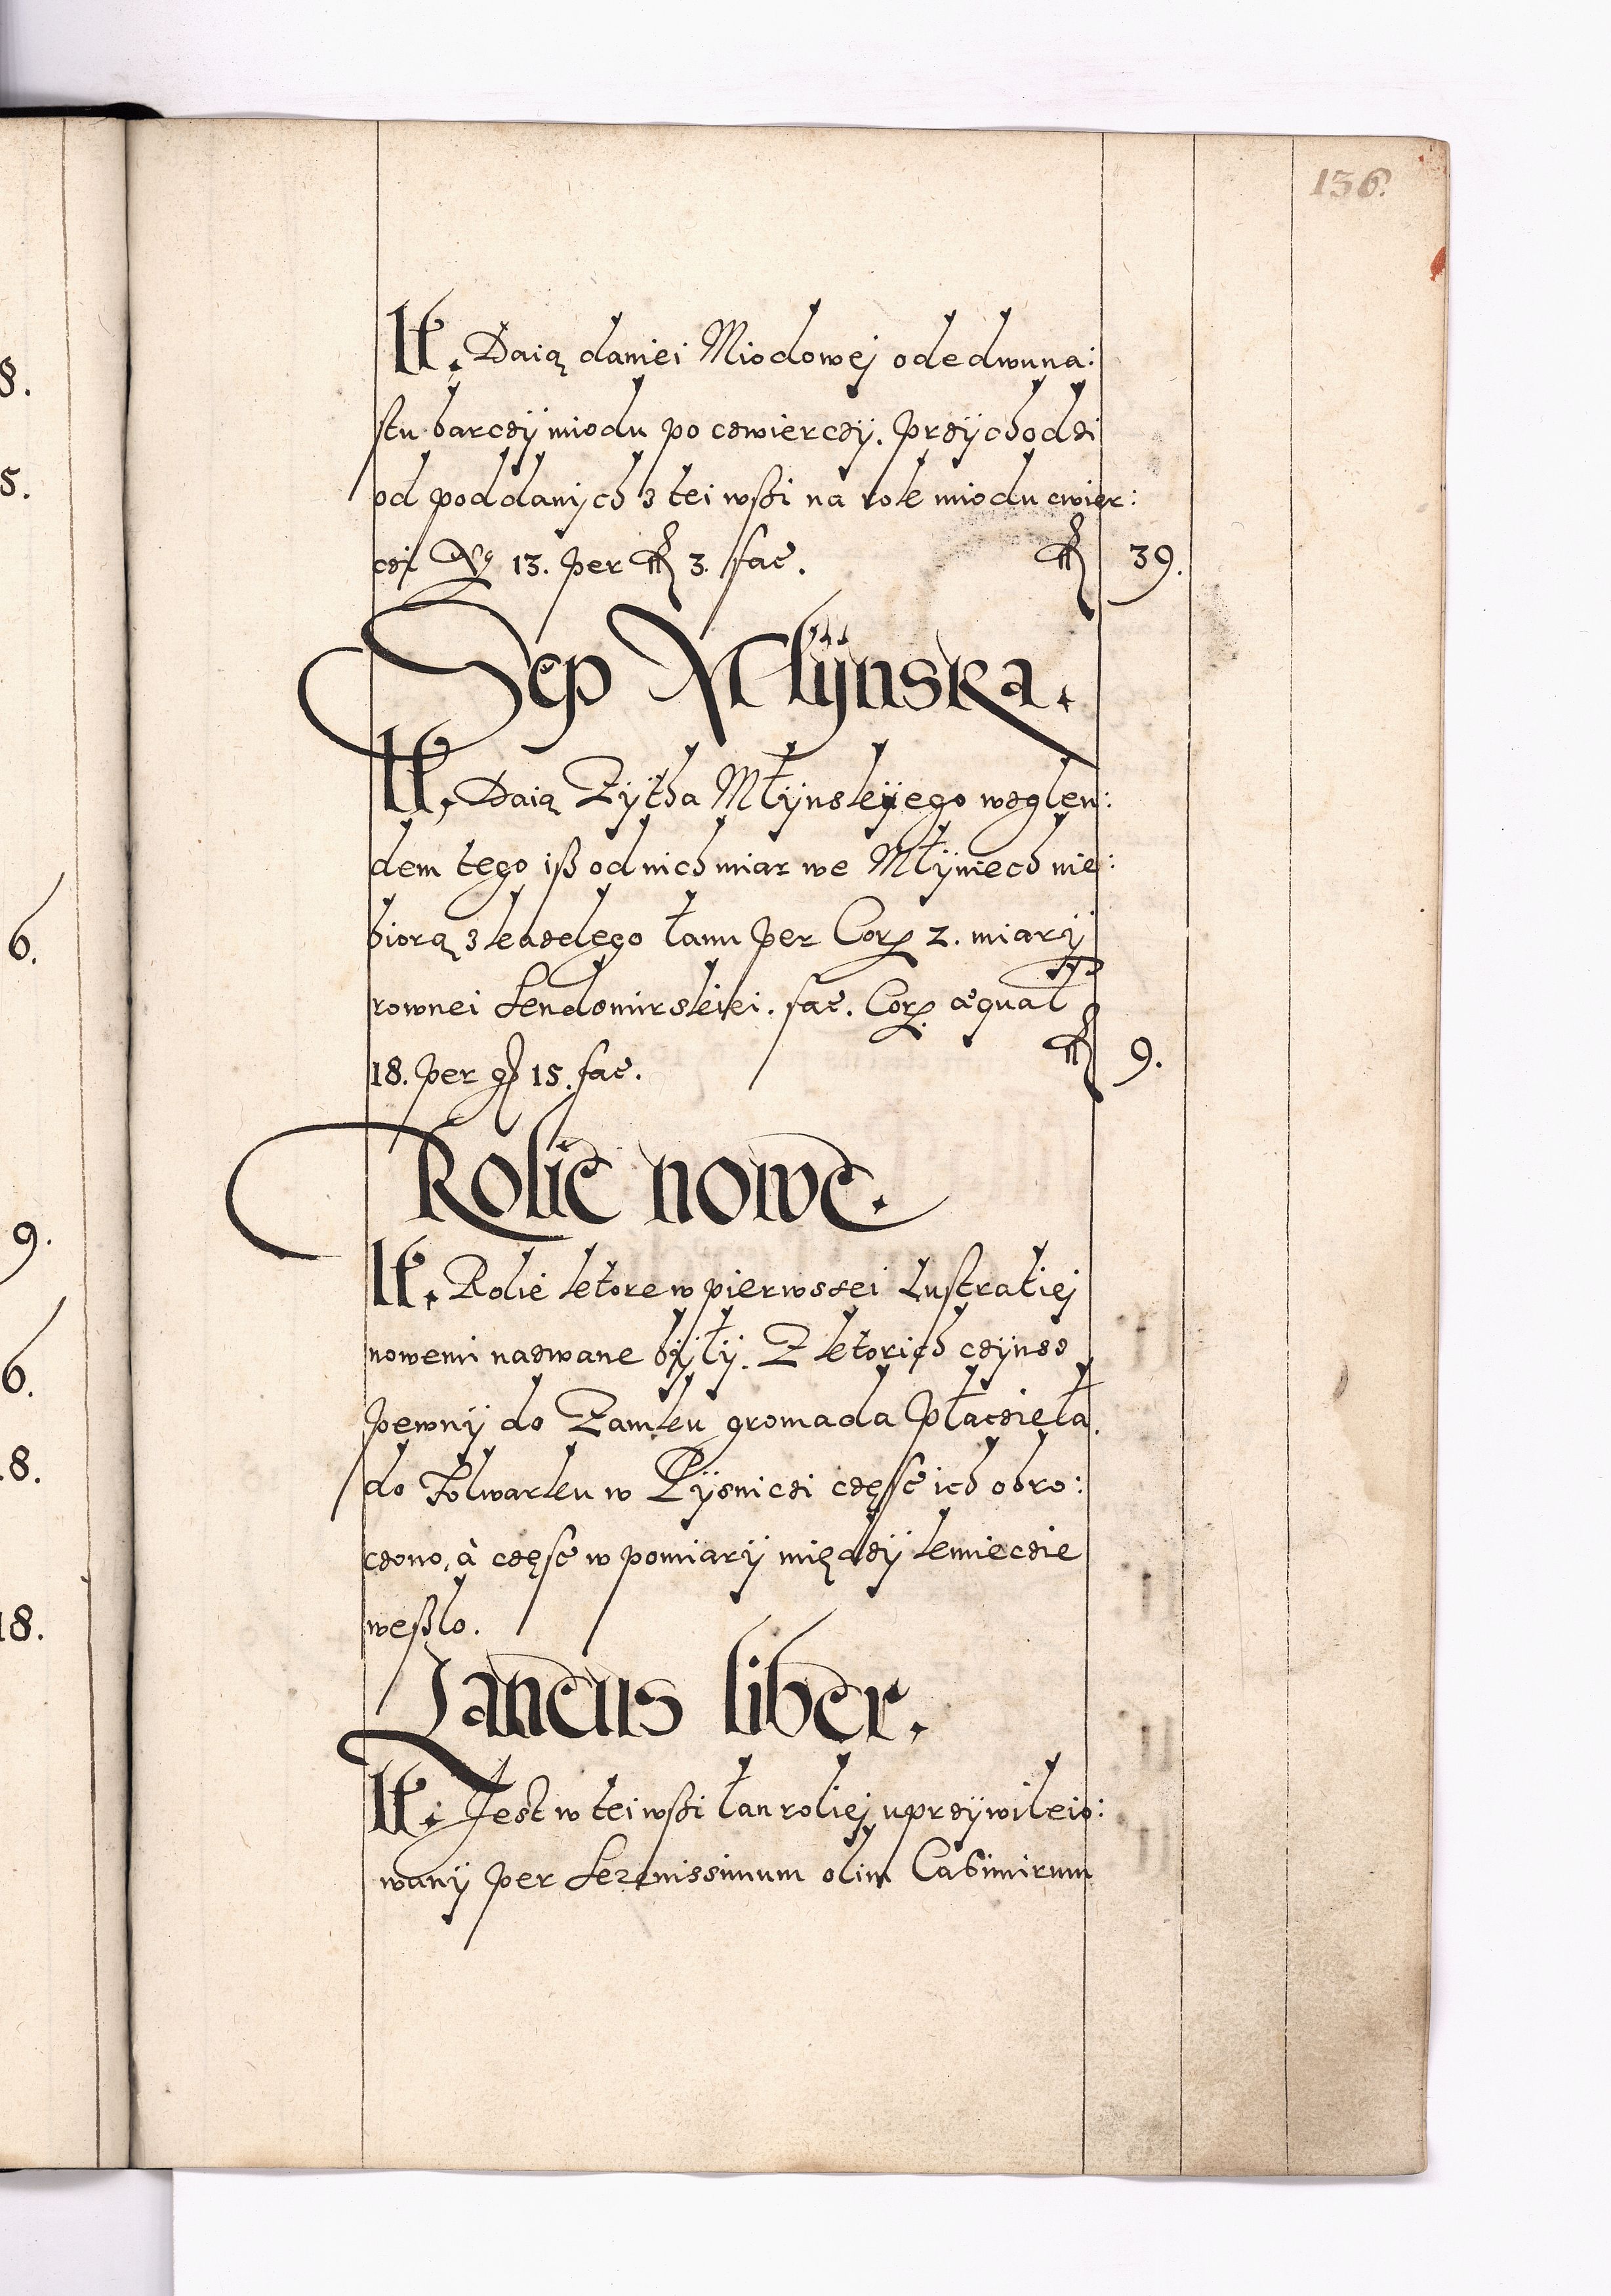 136.
It. Daią daniei Miodowej odedwuna:
stu barczÿ miodu po czwierczÿ. Przÿchodzi
od poddanÿch z tei wsßi na rok miodu cwier:
czi No 13. per fl 3. fac. fl 39.
Sep Mlÿnska.
It. Daią Zÿtha Młÿnskÿego wzglen:
dem tego iß od nich miar we Młÿniech nie:
biorą z kazdego łanu per Corp 2. miarÿ
rownei Sendomirskiei. fac. Corp. æqual
18. per gß 15. fac. fl 9.
Rolie nowe.
It. Rolie ktore w pierwszei Lustratiej
nowemi nazwane bÿłÿ. Z ktorich czÿnsz
pewnÿ do Zamku gromada płacziełà.
do Folwarku w Pÿsniczi częsc ich obro:
czono, à częsc w pomiarÿ międzÿ kmieczie
weßlo.
Laneus liber.
It. Jest w tei wsßi łan roliej uprzÿwileio:
wanÿ per Serenissimum olim Casimirum
8.
5.
6.
9.
6.
.8.
18.